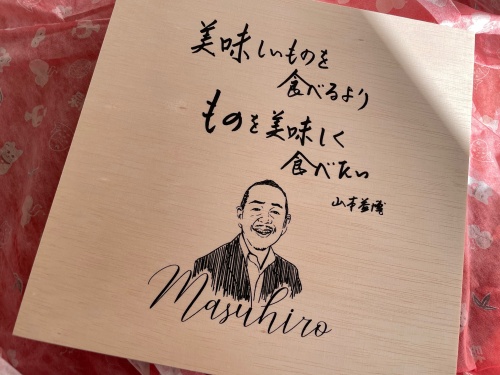 美味しいものを
食べるより
ものを美味しく
食べたい
山本益博
Masuhiro